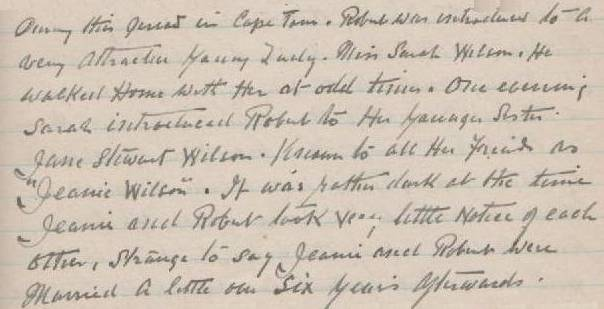 During this period in Cape Town. Robert was introduced to a
very attractive Young Lady. Miss Sarah Wilson. He
walked Home with Her at odd times. One evening
Sarah introduced Robert to Her younger Sister.
Jane Stewart Wilson. Known to all Her Friends as
"Jeanie Wilson". It was rather dark at the time
Jeanie and Robert took very little Notice of each
other, strange to say Jeanie and Robert were
Married a little over Six Years afterwards.